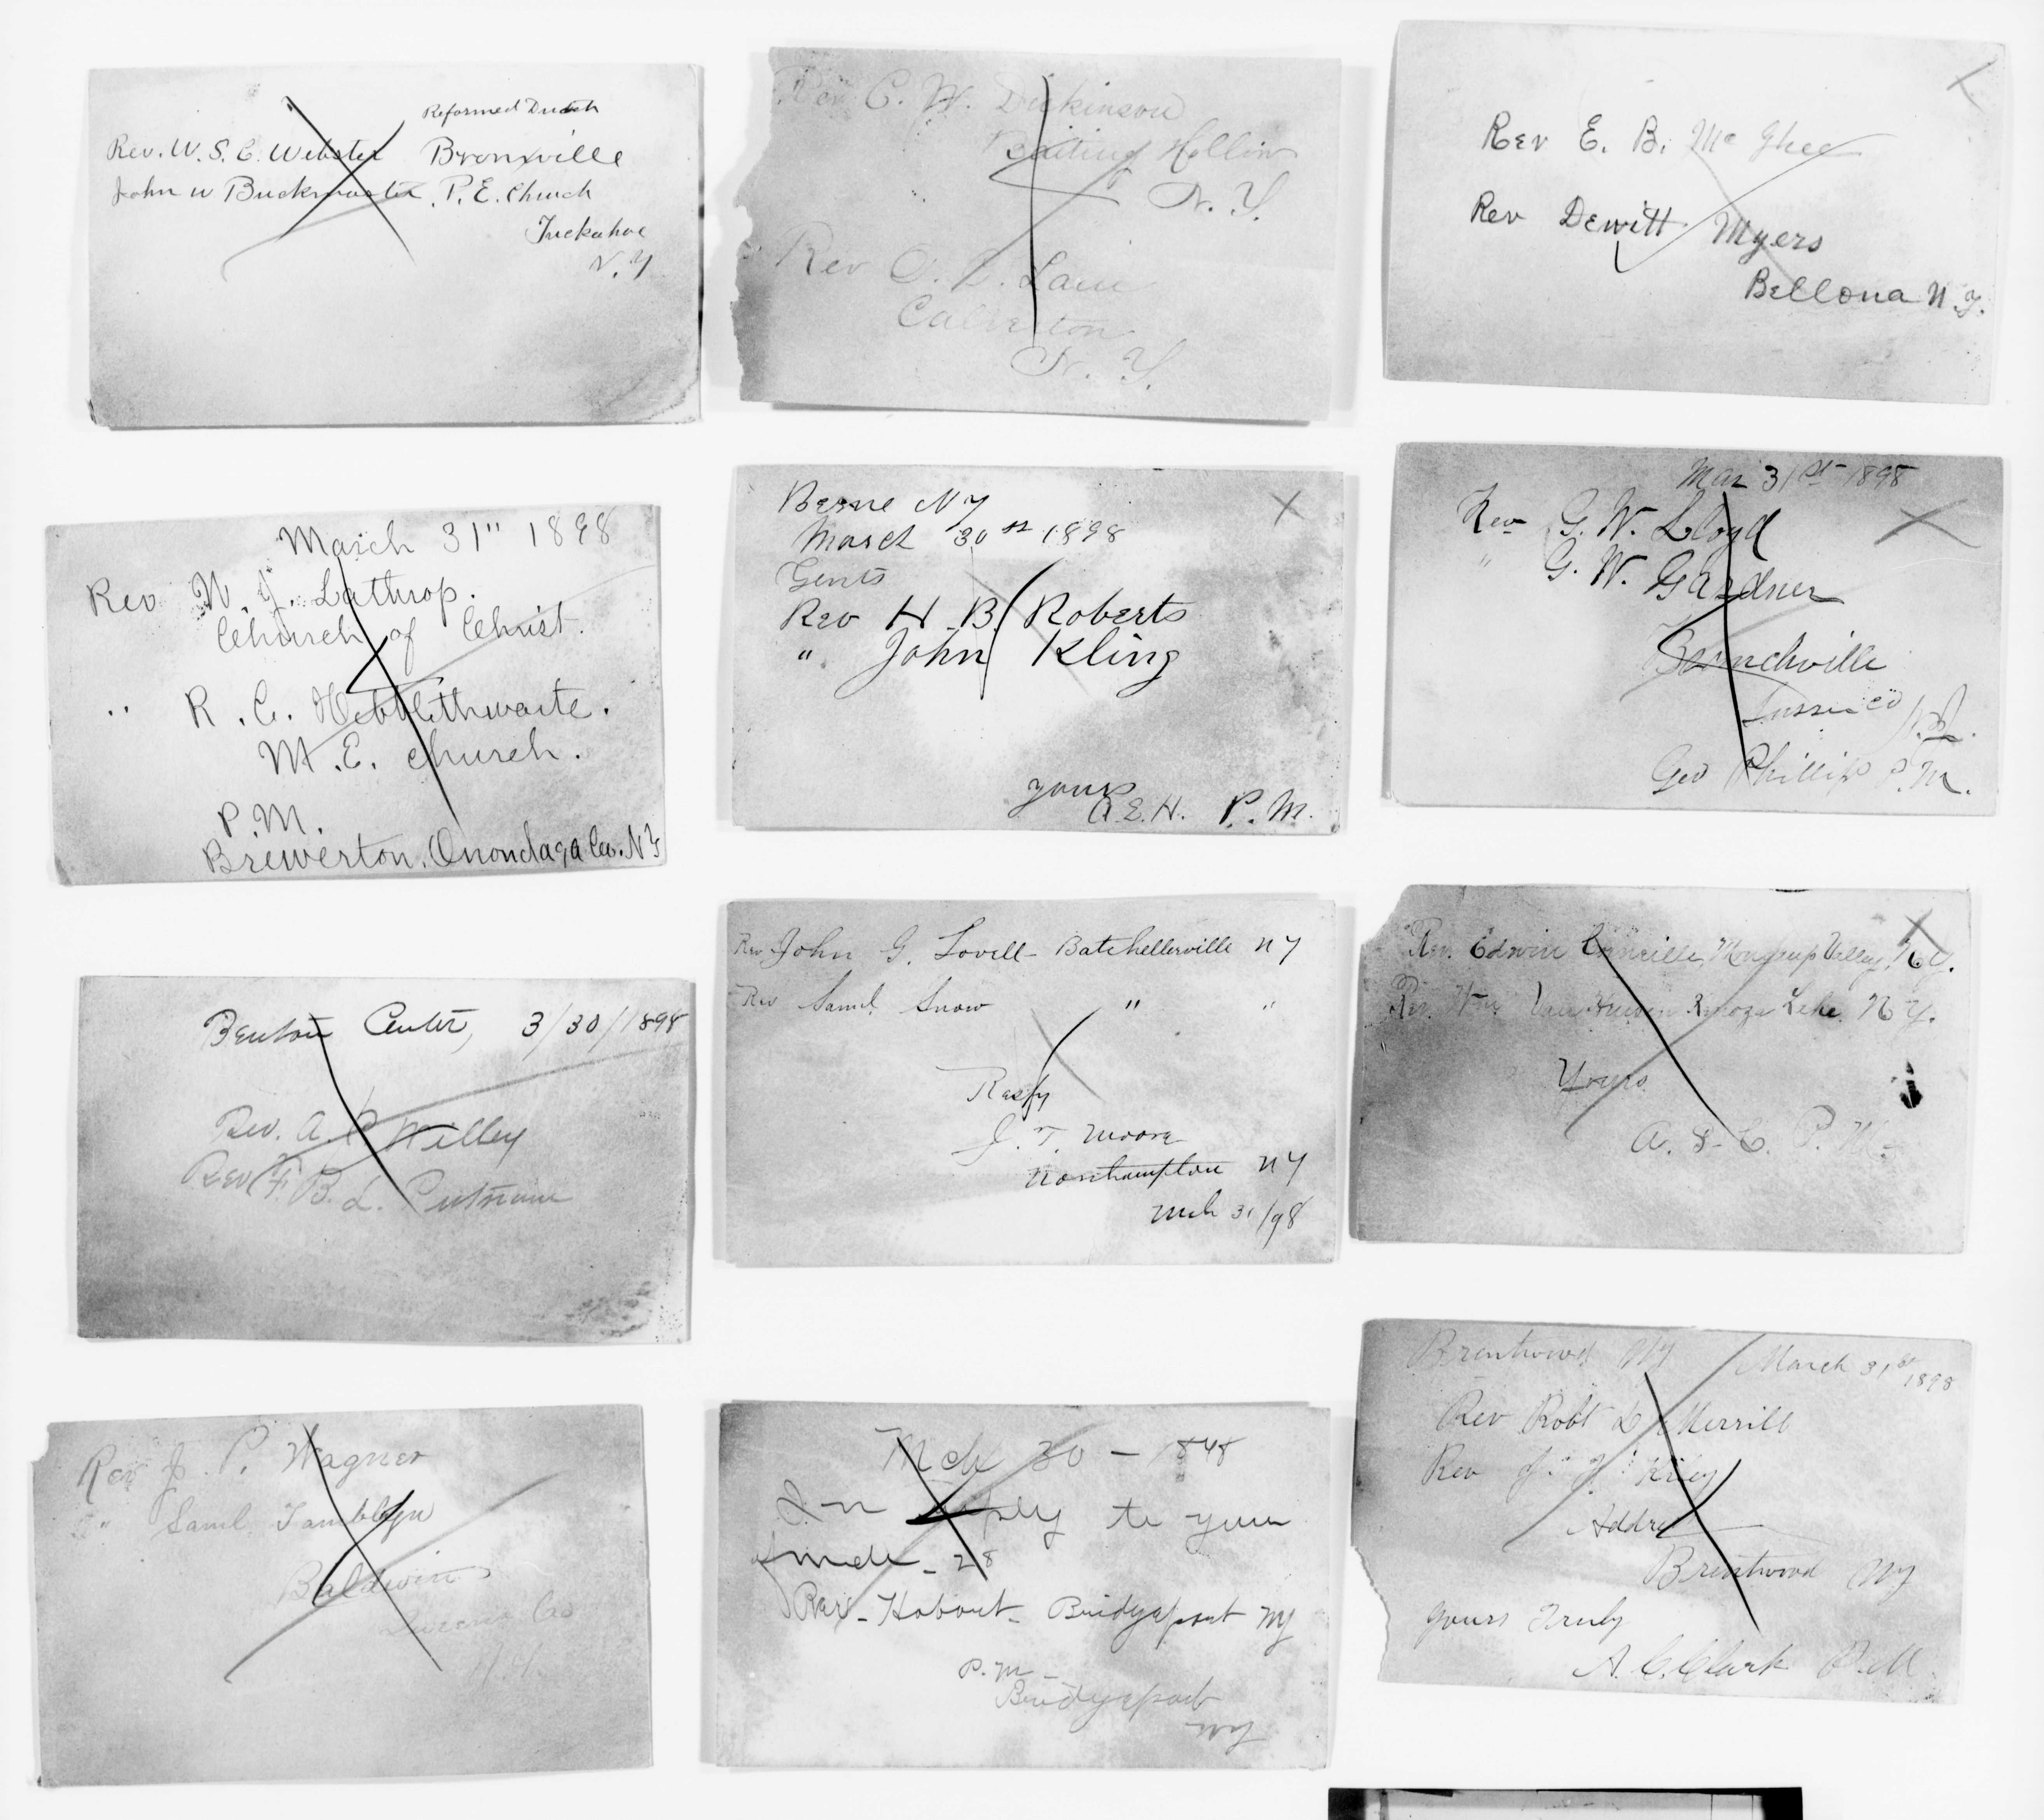 Reformed Dutch
Rev. W. S. C. Webster Bronxville
John W Buckmaster, P. E. Church
Tuckahoe
N. Y
March 31" 1898
Rev W. J. Lathrop.
Church of Christ.
" R. C. Hebblethwaite.
M. E. church.
P. M.
Brewerton, Onondaga Co. N Y
Benton Center, 3/30/1898
Rev. A P Willey
Rev F. B. L. Putnam
Rev J. P. Wagner
" Saml Tamblyn
Baldwin
Queens Co
Rev C. W. Dickinson
Baiting Hollow
N. Y.
Rev O. L. Lane
Calverton
N. Y.
Berne N Y
March 30 st 1898
Gents
Rev H. B. Roberts
" John Kling
yours
A. E. H. P. M.
Rev John G. Lovell - Batchellerville N Y
Rev Saml Snow " "
Resfy
J. T. Moore
Northampton N Y
Mch 31/98
Mch 30 - 1848
In reply to your
of Mch - 28
Rev - Hobart - Bridgeport NY
P. M -
Bridgeport
NY
Rev E. B. McGhee
Rev Dewitt Myers
Bellona N. Y.
Mar 31st 1898
Rev G. W. Lloyd
" G. W. Gardner
Branchville
Sussex Co N. J.
Geo Phillips P. M.
Rev. Edwin Mongaup Valley, N. Y.
Rev. Wm Van Kenoza Lake, N. Y.
Yours
A. S. C. P. M.
Brentwood NY March 31st 1898
Rev Robt L Merrill
Rev J. J. Kiley
Address
Brentwood NY
Yours Truly
A. C. Clark P. M